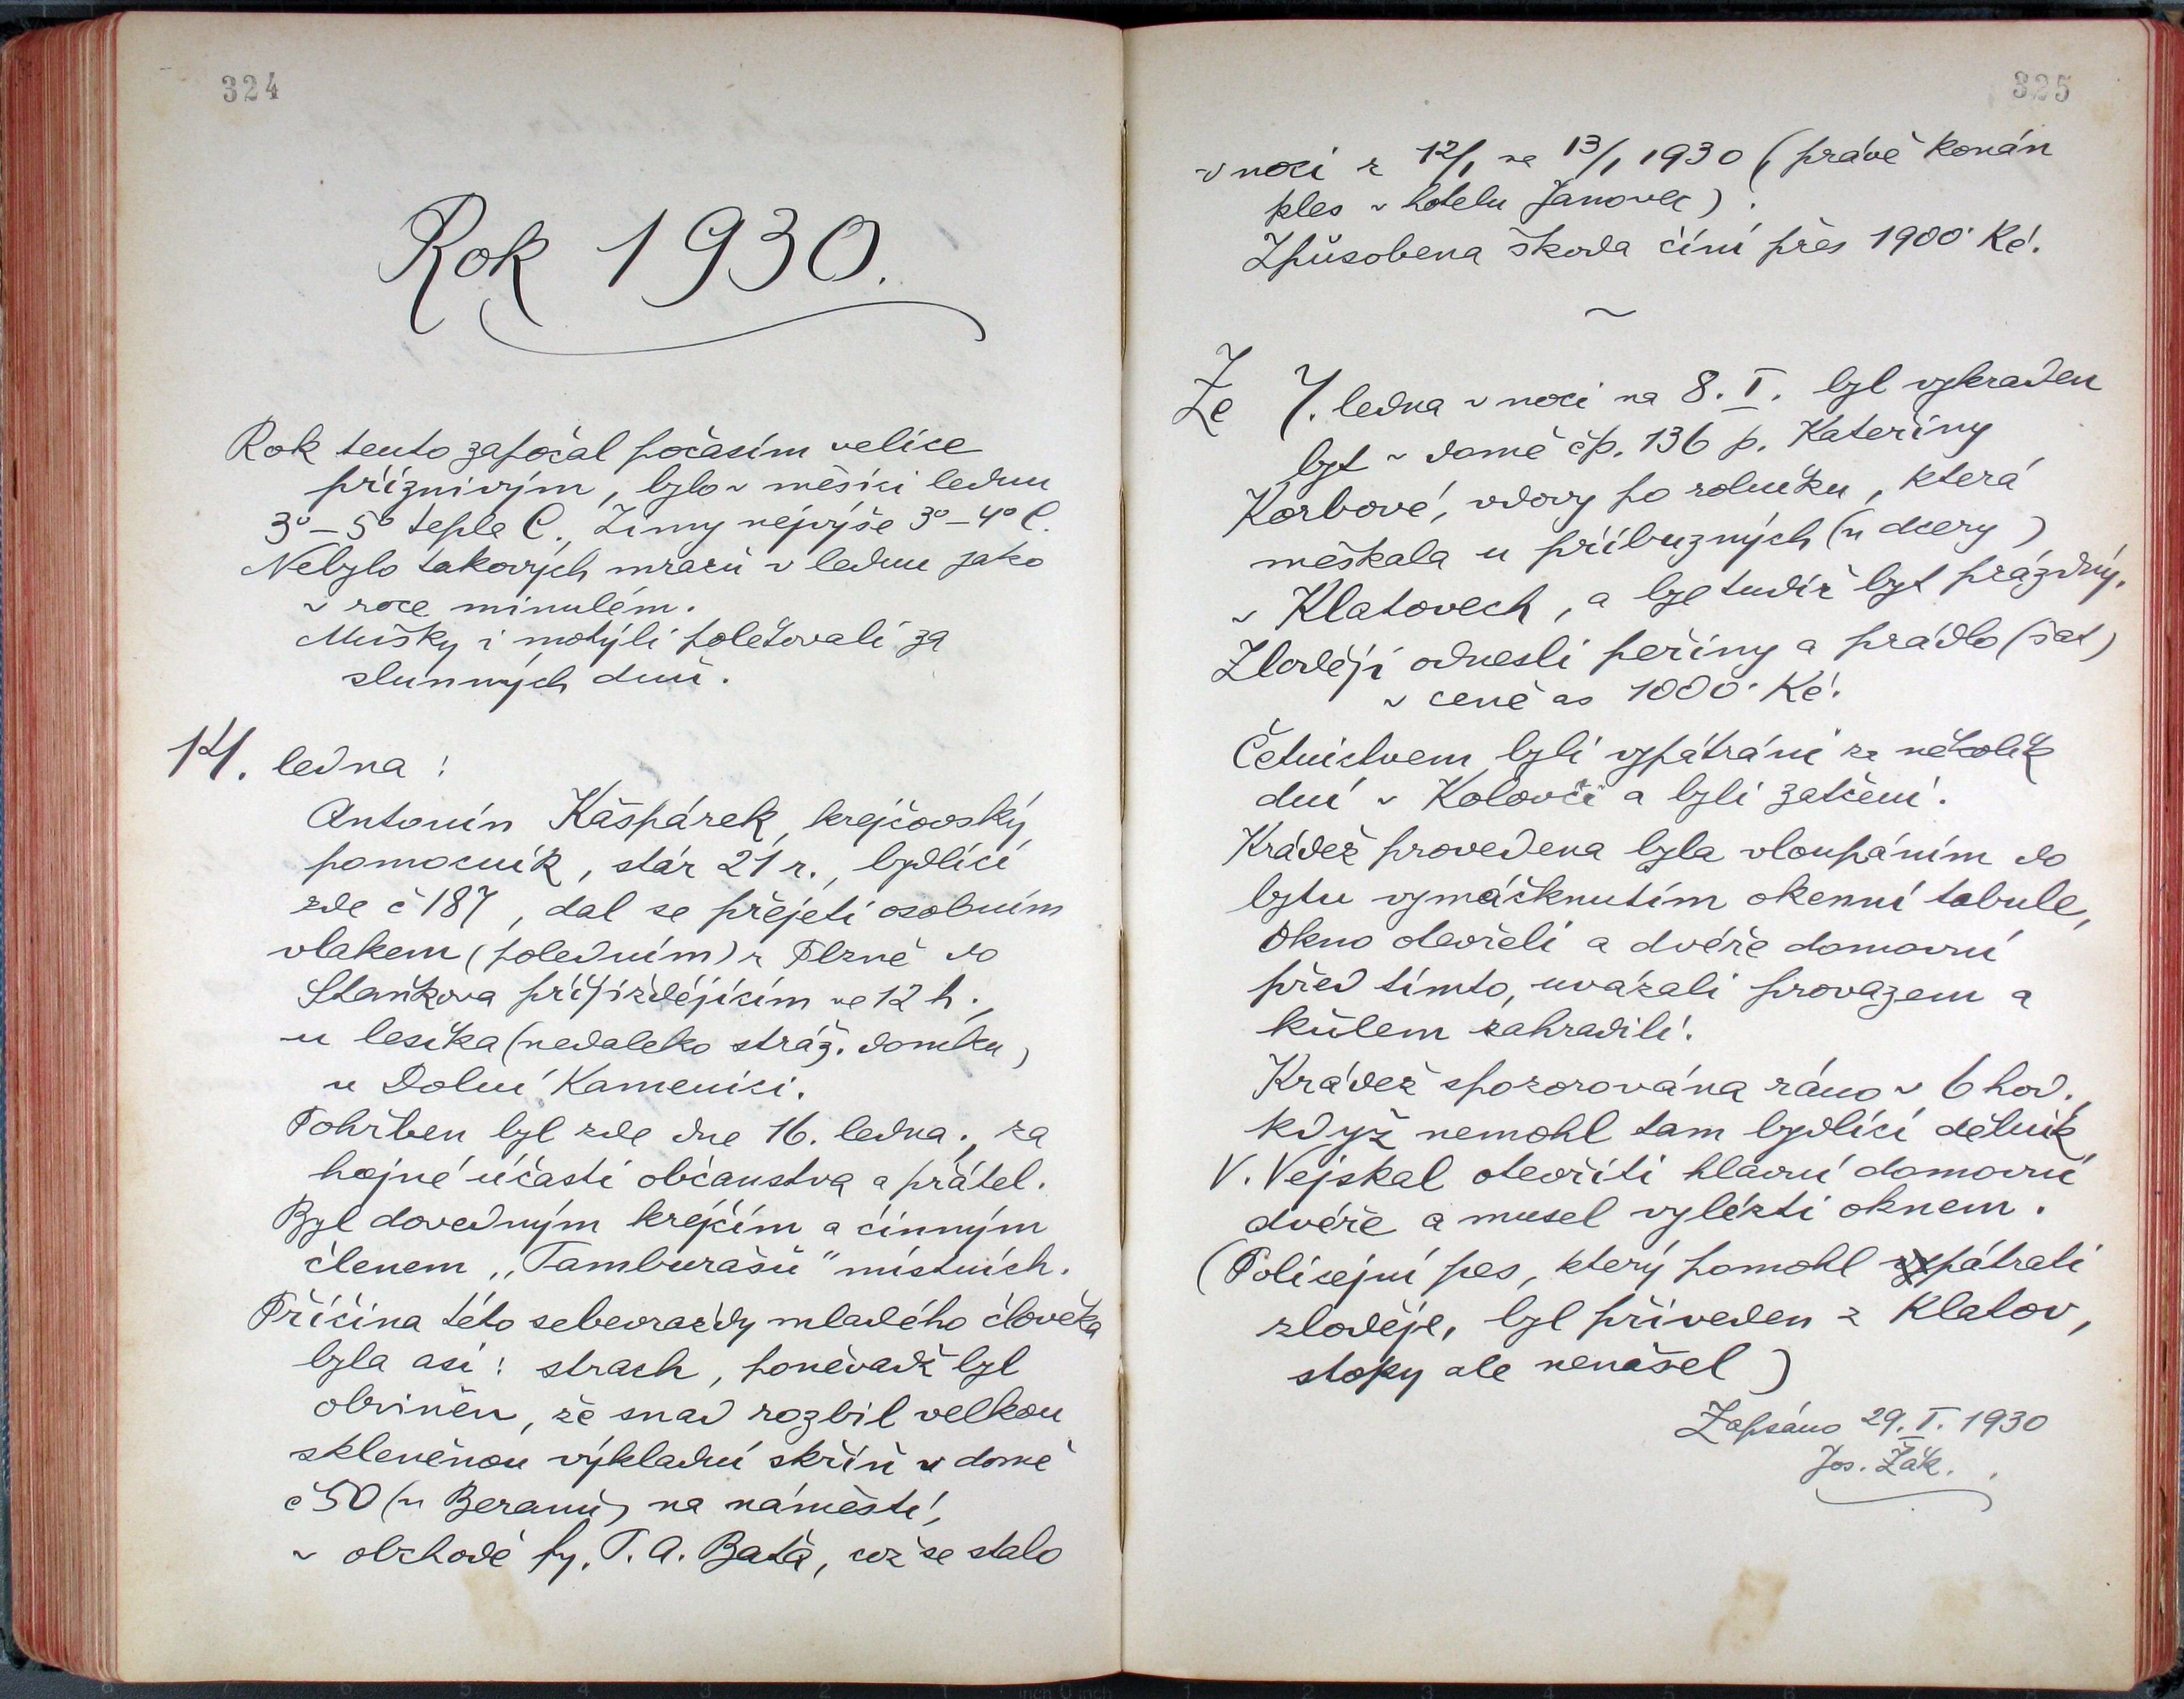 324
Rok 1930.
Rok tento započal počasím velice
příznivým, bylo v měsíci lednu
3° – 5° tepla C., Zimy nejvýše 3° – 4° C.
Nebylo takových mrazů v lednu jako
v roce minulém.
Mušky i motýli poletovali za
slunných dnů.
14. ledna:
Antonín Kašpárek, krejčovský
pomocník, stár 21 r., bydlící
zde č 187, dal se přejeti osobním
vlakem (poledním) z Plzně do
Staňkova přijíždějícím ve 12 h.,
u lesíka (nedaleko stráž. domku)
u Dolní Kamenici.
Pohřben byl zde dne 16. ledna., za
hojné účasti občanstva a přátel.
Byl dovedným krejčím a činným
členem „Tamburašů" místních.
Příčina této sebevraždy mladého člověka
byla asi: strach, poněvadž byl
obviněn, že snad rozbil velkou
skleněnou výkladní skříň v domě
č 50 (u Beranů) na náměstí,
v obchodě fy. T. A. Baťa, což se stalo
325
v noci z 12/1 na 13/1 1930 (právě konán
ples v hotelu Janovec).
Způsobena škoda činí přes 1900· Kč.
~
Ze 7. ledna v noci na 8. I. byl vykraden
byt v domě čp. 136 p. Kateřiny
Korbové, vdovy po rolníku, která
meškala u příbuzných (u dcery)
v Klatovech, a byl tudíž byt prázdný.
Zloději odnesli peřiny a prádlo (šat)
v ceně as 1000· Kč.
Četnictvem byli vypátráni za několik
dní v Kolovči a byli zatčeni.
Krádež provedena byla vloupáním do
bytu vymáčknutím okenní tabule,
okno otevřeli a dvéře domovní
před tímto, uvázali provazem a
kůlem zahradili.
Krádež zpozorována ráno v 6 hod.,
když nemohl tam bydlící dělník
V. Vejskal otevříti hlavní domovní
dvéře a musel vylézti oknem.
(Policejní pes, který pomohl pátrati
zloděje, byl přiveden z Klatov,
stopy ale nenašel)
Zapsáno 29. I. 1930
Jos. Žák.